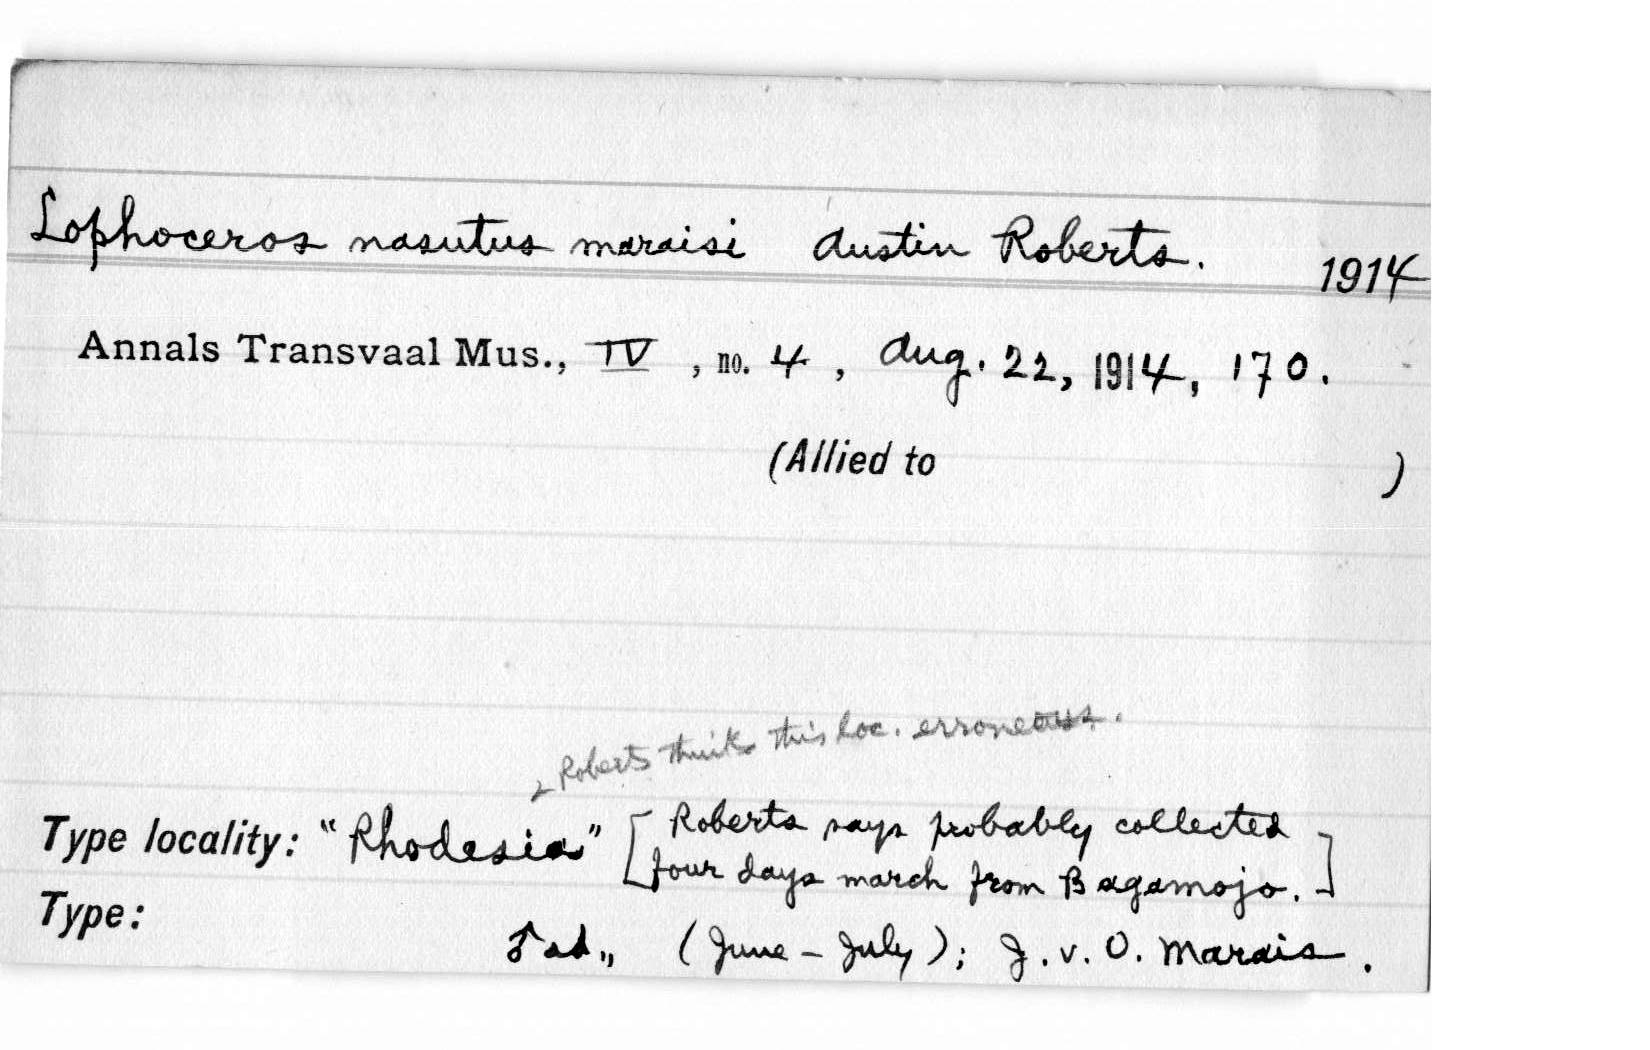 Lophoceros nasutus maraisi Austin Roberts. 1914
Annals Transvaal Mus., IV, no. 4, Aug. 22, 1914, 170.
(Allied to )
Roberts thinks this loc. erroneous.
Type locality: "Rhodesia" [Roberts says probably collected
four days march from Bagamojo.]
Type:
ad., (June - July); J. v. O. Marais.